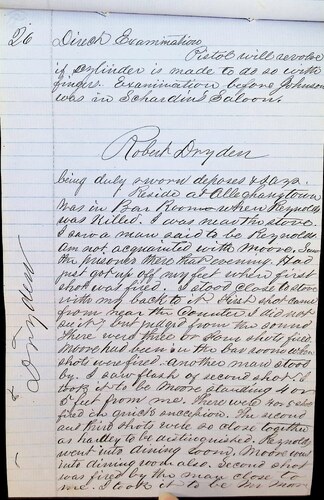 26
Direct Examination
Pistol will revolve
if cylinder is made to do so with
finger. Examination before Johnson
was in Schardin's Saloon.
Robert Dryden
being duly sworn deposes & says.
Reside at Alleghanytown
Was in Bar Room when Reynolds
was Killed. I was near the stove.
I saw a man said to be Reynolds
Am not acquainted with Moore. Saw
the prisoner there that evening. Had
just got up off my feet when first
shot was fired. I stood close to stove
with my back to it. First shot came
from near the Counter I did not
see it, but judged from the sound
There were three or four shots fired.
Moore had been in the bar room when
shots were fired. Another man stood
by. I saw flash of second shot. I
took it to be Moore standing 4 or
5 feet from me. There were 4 or 5 shots
fired in quick succession. The second
and third shots were so close together
as hardly to be distinguished. Reynolds
went into dining room. Moore went
into dining room also. Second shot
was fired by the man close to
me. I took it to be the man
Dryden